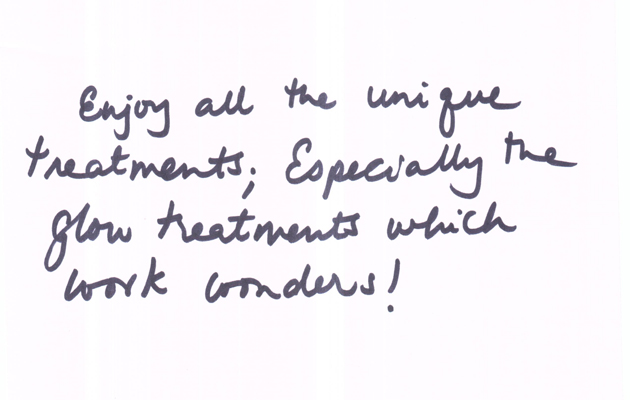 Enjoy all the unique
treatments; Especially the
glow treatments which
work wonders!